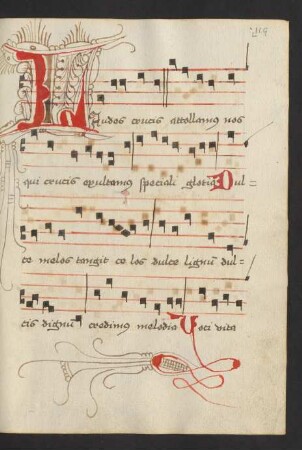 Laudes crucis attollamus nos
qui crucis exultamus speciali gloria Dul=
ce melos tangit celos dulce lignum dul=
cis dignum credimus melodia Voci vita